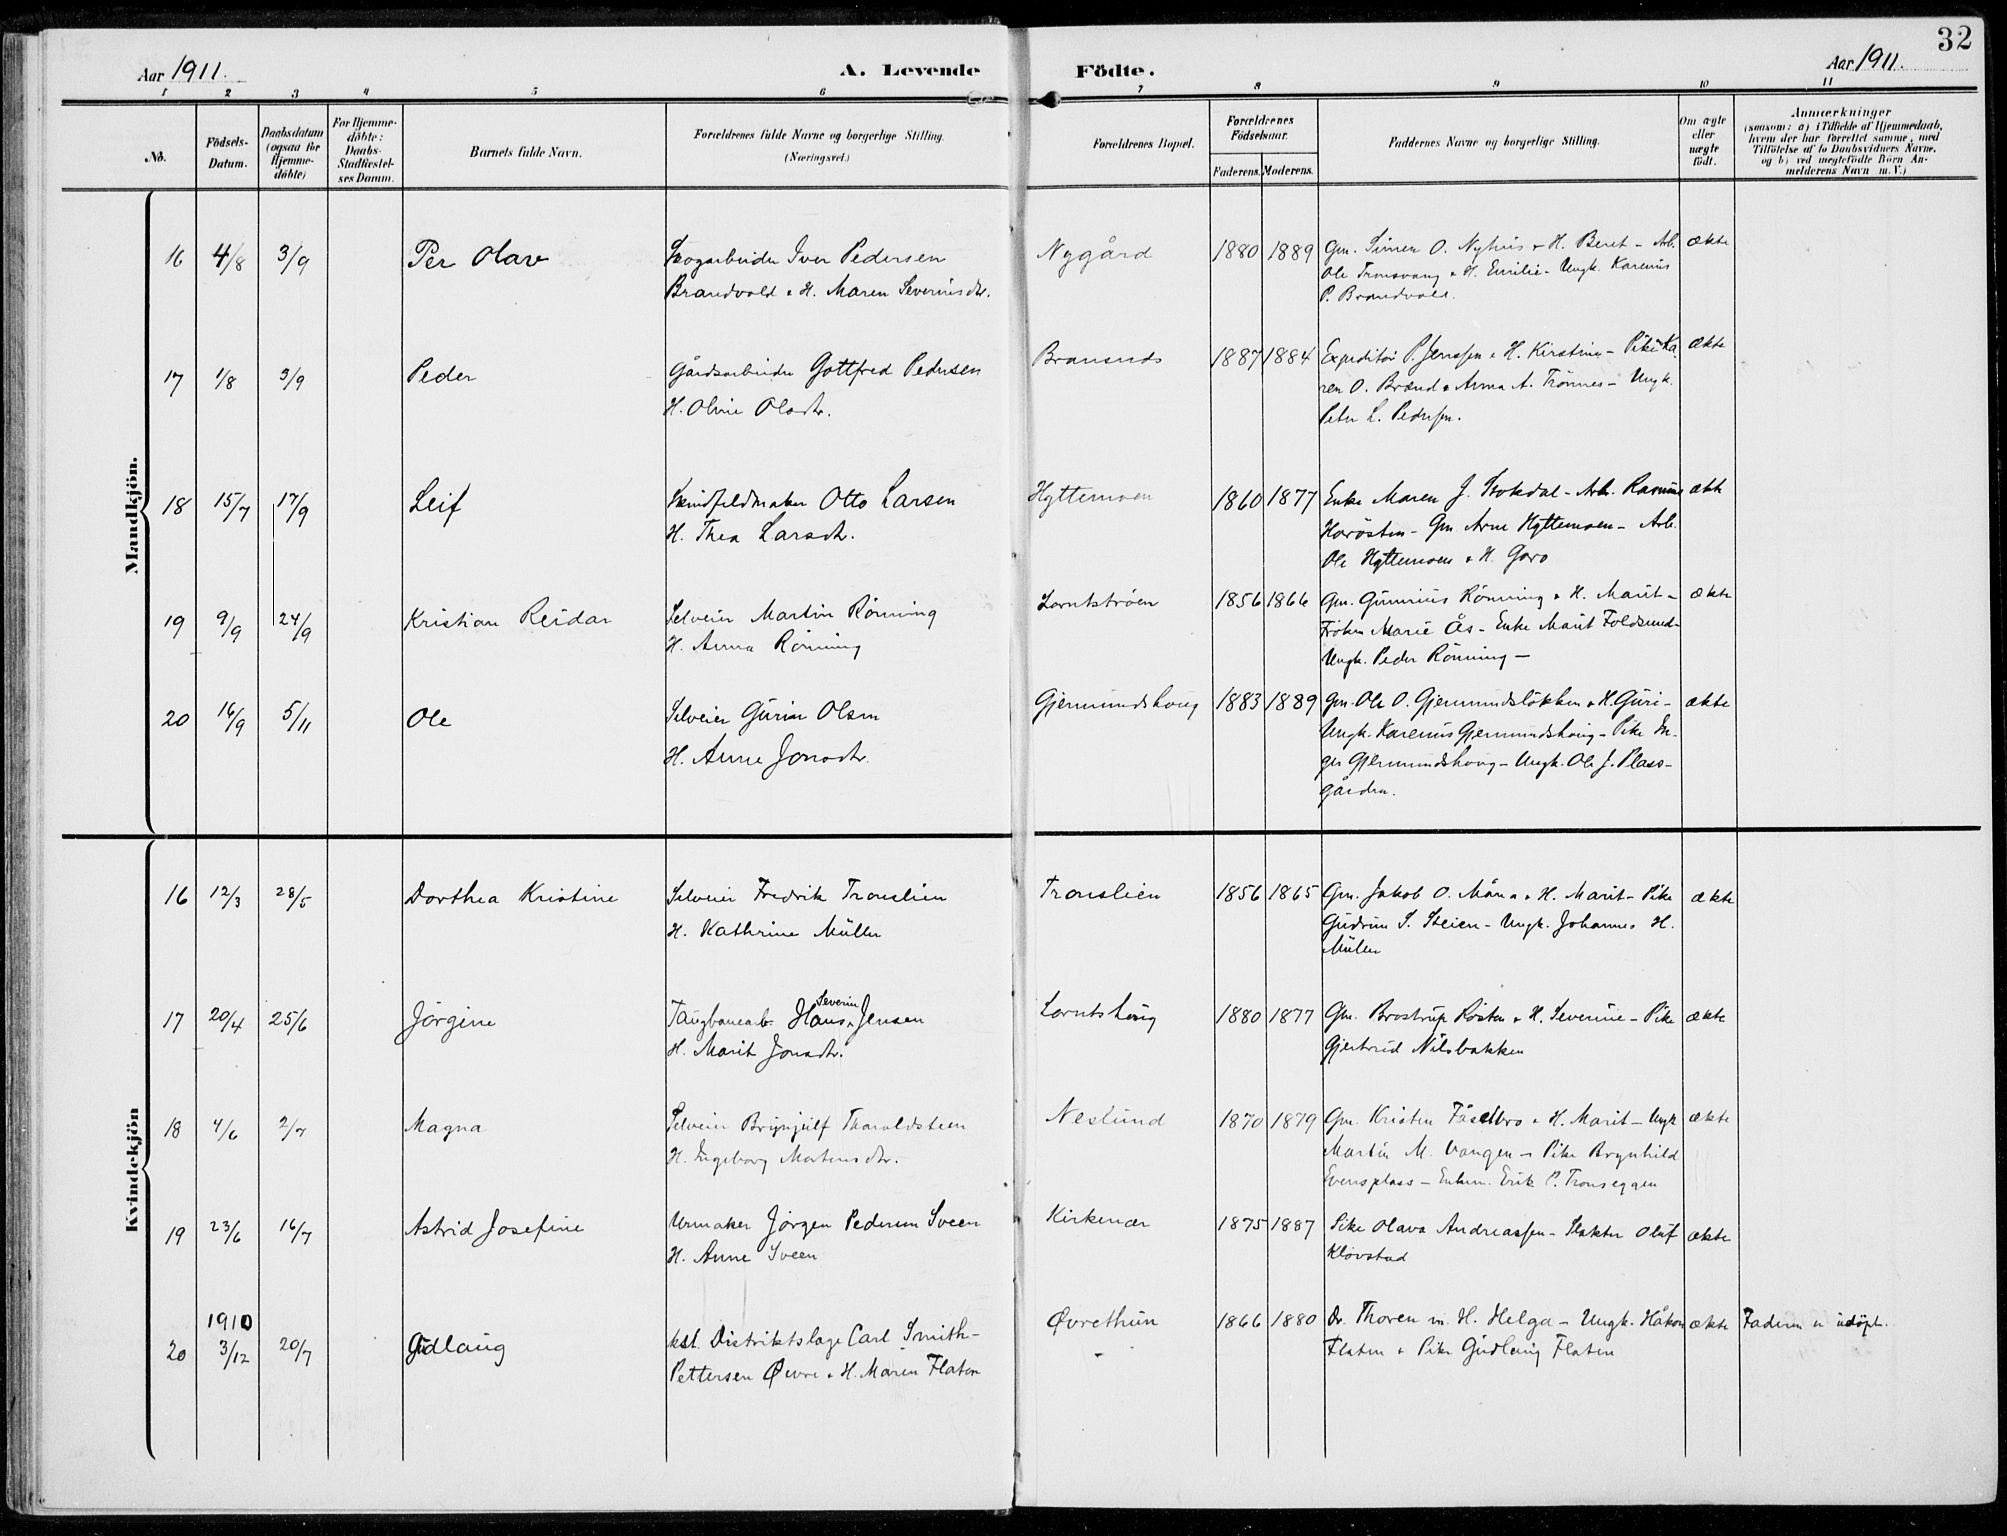 32
Aar 1911.
A. Levende
Födte.
Aar 1911.
1 2 3 4 5 6 7 8 9 10 11
No.
Födsels-
Datum.
Daabsdatum
(ogsaa for
Hjemme-
döbte)
For Hjemme-
döbte:
Daabs-
Stadfæstel-
ses Datum.
Barnets fulde Navn.
Forældrenes fulde Navne og borgerlige Stilling.
(Næringsvei.)
Forældrenes Bopæl.
Forældrenes
Födselsaar.
Faderens. Moderens.
Faddernes Navne og borgerlige Stilling.
Om ægte
eller
uægte
født.
Anmærkninger
(saasom: a) i Tilfælde af Hjemmedaab,
hvem der har forrettet samme, med
Tilföielse af to Daabsvidners Navne,
og b) ved uægtefödte Börn An-
melderens Navn m. V.)
Mandkjön.
16 4/8 3/9 Per Olav
Skogarbeider Iver Pedersen
Brandvold & H. Maren Severinsdtr.
Nygård 1880 1889
Gm. Simen O. Nyhus & H. Beret - Arb.
Ole Tronsvang & H. Emilie - Ungk. Karenus
P. Brandvold.
ækte
17 1/8 3/9 Peder
Gårdsarbeider Gottfred Pedersen
H. Oline Olsdtr.
1887 1884
Expeditør P. Jenssen & H. Kirstine - Pike Ka
ren O. Brænd & Anna A. Trønnes - Ungk.
Peter L. Pedersen.
ækte
18 15/7 17/9 Leif
Skindfeldmaker Otto Larsen
H. Thea Larsdtr.
Hyttemoen 1860 1877
Enke Maren J. Stokdal - Arb. Rasmus
- Gm Arne Hyttemoen - Arb.
Ole Hyttemoen & H. Goro
ækte
19 9/9 24/9 Kristian Reidar
Selveier Martin Rönning
H. Anna Rönning
Lorntströen 1856 1866
Gm. Gunnius Rönning & H. Marit -
Frøken Marie Ås - Enke Marit Foldsund -
Ungk. Peder Rönning -
ækte
20 16/9 5/11 Ole
Selveier Olsen
H. Anne Jonsdtr.
Gjermundshoug 1883 1889
Gm. Ole O. Gjermundsløkken & H. Guri -
Ungk. Karenus Gjermundshoug - Pike In-
ger Gjermundshoug - Ungk. Ole J. Plass-
gården.
ækte
Kvindekjön
16 12/3 28/5 Dorthea Kristine
Selveier Fredrik Tronslien
H. Kathrine Müller
Tronslien 1856 1865
Gm. Jakob O. Måna & H. Marit - Pike
Gudrun S. Steien - Ungk. Johannes H.
Müller
ækte
17 20/4 25/6 Jörgine
Severin
Taugbanearb. Hans Jensen
H. Marit Jonsdtr.
Lorntshaug 1880 1877
Gm. Brostrup Røsten & H. Severine - Pike
Gjertrud Nilsbakken
ækte
18 4/6 2/7 Magna
Selveier Brynjulf Tharaldsteen
H. Ingeborg Mortensdtr.
Neslund 1870 1879
Gm. Kristen Fåsetbro & H. Marit - Ungk
Martin M. Vangen - Pike Brynhild
Evensplass - Enkem. Erik P. Tronseggen
ækte
19 23/6 16/7 Astrid Josefine
Urmaker Jörgen Pedersen Sveen
H. Anne Sveen
Kirkenær 1875 1887
Pike Olava Andreassen - Slakter Oluf
Kløvstad
ækte
1910
20 3/12 20/7 Gudlaug
kst. Distriktslæge Carl Smith-
Pettersen Øvre & H. Maren Flaten
Øvrethun 1866 1880
Dr. Thoren m. H. Helga - Ungk. Håkon
Flaten & Pike Gudlaug Flaten
ækte
Faderen er udøpt.